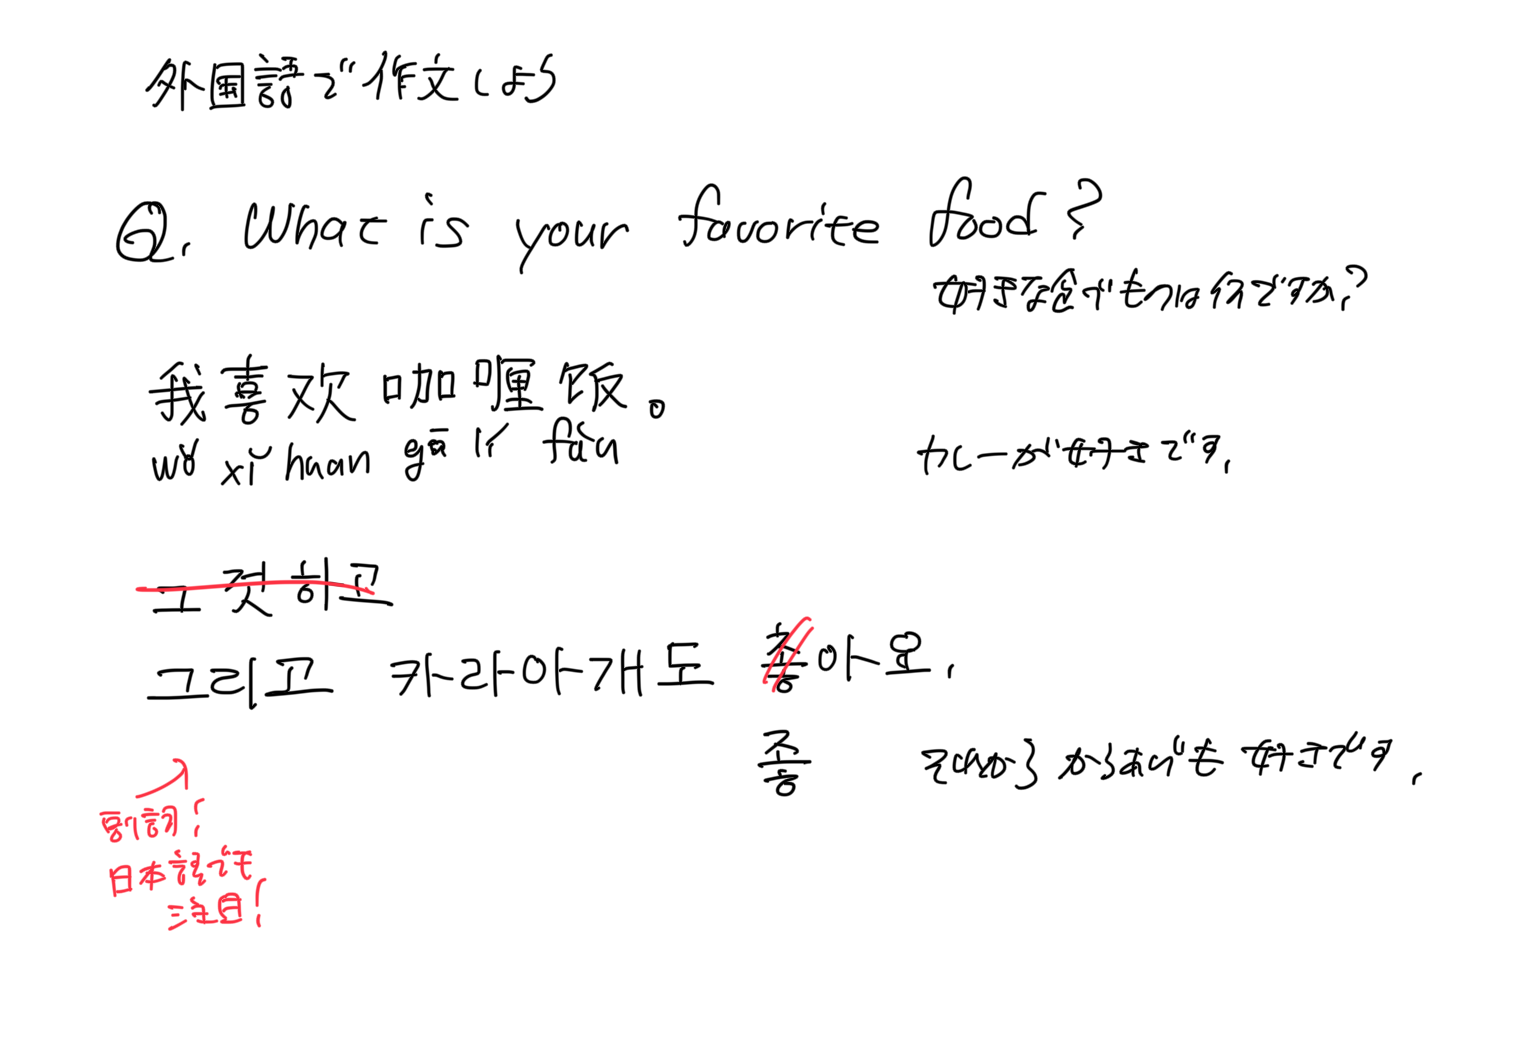 外国語で作文しよう
Q. What is your favorite food?
好きな食べもつは何ですか?
我喜欢咖喱饭。
wǒ xǐ huan gā lí fàn
カレーが好きです.
그것하고
그리고 카라아개도 춍아요.
죵
それから からあげも 好きです.
副詞!
日本語でも
注目!